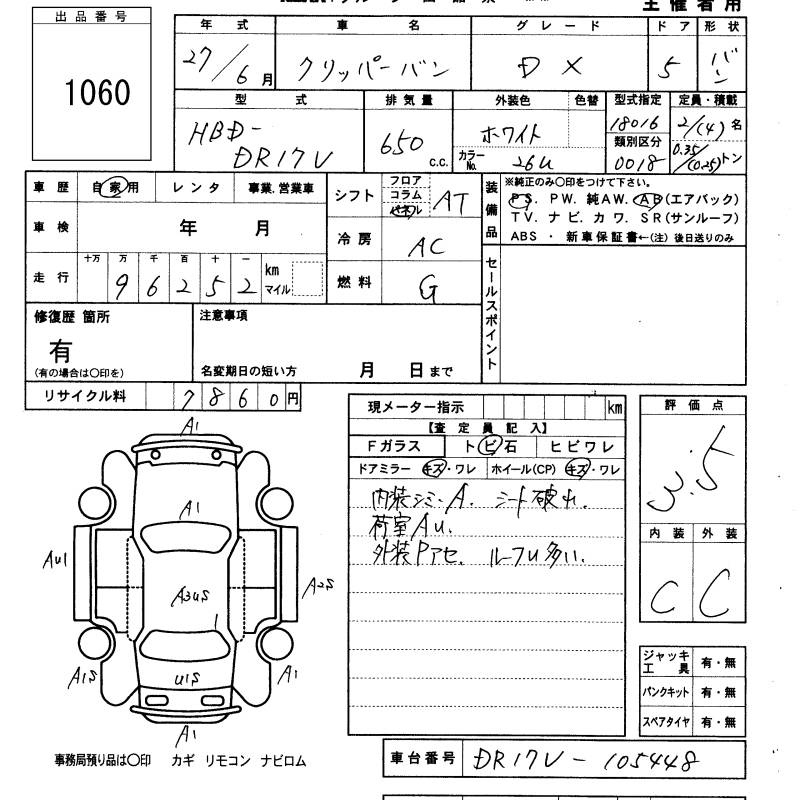 主催者用
出品番号
1060
年式 車名 グレード ドア 形状
27/6月 クリッパーバン DX 5 バン
型式 排気量 外装色 色替 型式指定 定員・積載
HBD-DR17V 650 c.c. ホワイト カラーNo. 26U 18016 2/(4)名
類別区分 0018 0.35/(0.25)トン
車歴 自家用 レンタ 事業、営業車
車検 年 月
走行 十万 万 千 百 十 一 km マイル
9 6 2 5 2
シフト フロア コラム パネル AT
冷房 AC
燃料 G
装備品
※純正のみ〇印をつけて下さい。
PS. PW. 純AW. AB(エアバック)
TV. ナビ. カワ. SR(サンルーフ)
ABS ・ 新車保証書←(注) 後日送りのみ
セールスポイント
修復歴 箇所
有
(有の場合は〇印を)
注意事項
名変期日の短い方 月 日まで
リサイクル料 7860円
現メーター指示 km
【査定員記入】
Fガラス トビ石 ヒビワレ
ドアミラー キズ・ワレ ホイール(CP) キズ・ワレ
内装シミ・A. シート破れ.
荷室AU.
外装Pアセ. ルーフU多い.
評価点
3.5
内装 外装
C C
A1
A1
AU1
A3US
A2S
1
A1S
U1S
A1
A1
ジャッキ工具 有・無
パンクキット 有・無
スペアタイヤ 有・無
事務局預り品は〇印 カギ リモコン ナビロム
車台番号 DR17V-105448